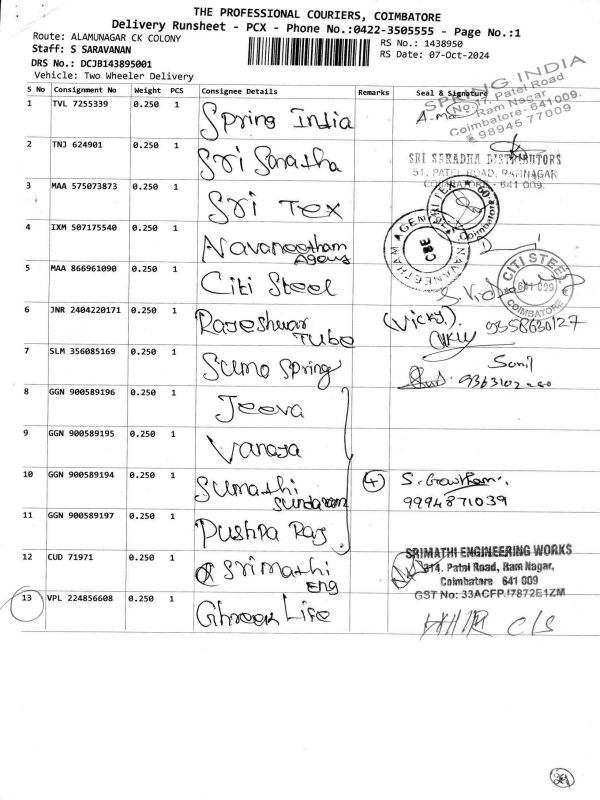 THE PROFESSIONAL COURIERS, COIMBATORE
Delivery Runsheet - PCX - Phone No.:0422-3505555 - Page No.:1
Route: ALAMUNAGAR CK COLONY
Staff: S SARAVANAN
DRS No.: DCJB143895001
Vehicle: Two Wheeler Delivery
RS No.: 1438950
RS Date: 07-Oct-2024
S No Consignment No Weight PCS Consignee Details Remarks Seal & Signature
1 TVL 7255339 0.250 1 Spring India
SPRING INDIA
No. 17, Patel Road
Ram Nagar
Coimbatore-641009.
9894577009
2 TNJ 624901 0.250 1 Sri Saratha
SRI SARADHA DISTRIBUTORS
51, PATEL ROAD, RAMNAGAR
COIMBATORE - 641 009.
3 MAA 575073873 0.250 1 Sri Tex
SRI TEX
Coimbatore
4 IXM 507175540 0.250 1 Navaneetham
Agency
NAVANEETHAM AGEN
CBE
5 MAA 866961090 0.250 1 Citi Steel
CITI STEEL
641 009
COIMBATORE
6 JNR 2404220171 0.250 1 Rajeshwar
Tube
(Vicky)
9358630127
7 SLM 356085169 0.250 1 Sumo Spring
Sunil
8 GGN 900589196 0.250 1 Jeeva
9 GGN 900589195 0.250 1 Vanaja
10 GGN 900589194 0.250 1 Sumathi
Sundaram
4
S. Gowtham.
9994871039
11 GGN 900589197 0.250 1 Pushpa Raj
12 CUD 71971 0.250 1 Srimathi
Eng
SRIMATHI ENGINEERING WORKS
314, Patel Road, Ram Nagar,
Coimbatore 641 009
13 VPL 224856608 0.250 1 Ghreek Life
C/S